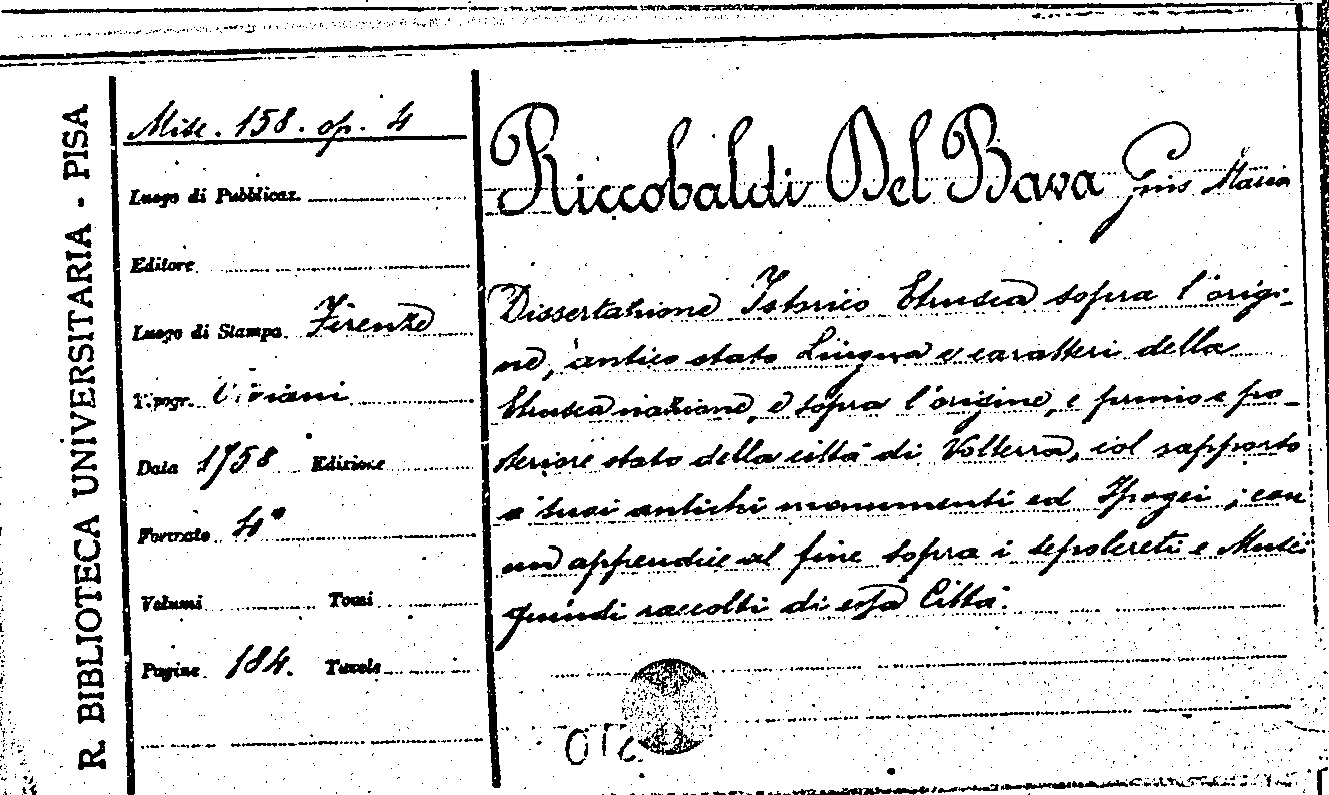 R. BIBLIOTECA UNIVERSITARIA - PISA
Misc. 158. op. 4
Luogo di Pubblicaz.
Editore
Luogo di Stampa Firenze
Tipogr. Viviani
Data 1758 Edizione
Formato 4°
Volumi Tomi
Pagine 184. Tavole
Riccobaldi Del Bava Gius Maria
Dissertazione Istorico Etrusca sopra l'origi-
ne, antico stato Lingua e caratteri della
Etrusca nazione, e sopra l'origine, e primo e po-
steriore stato della città di Volterra, col rapporto
a' suoi antichi monumenti ed Ipogei; con
un appendice al fine sopra i sepolcreti e Musei
quindi raccolti di essa Città.